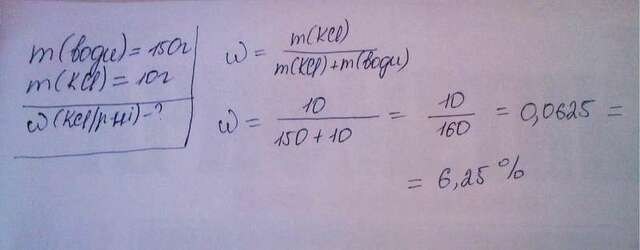 m(води) = 150г
m(KCl) = 10г
ω(KCl/р-ні) - ?
ω = m(KCl) / m(KCl) + m(води)
ω = 10 / 150 + 10 = 10 / 160 = 0,0625 =
= 6,25 %